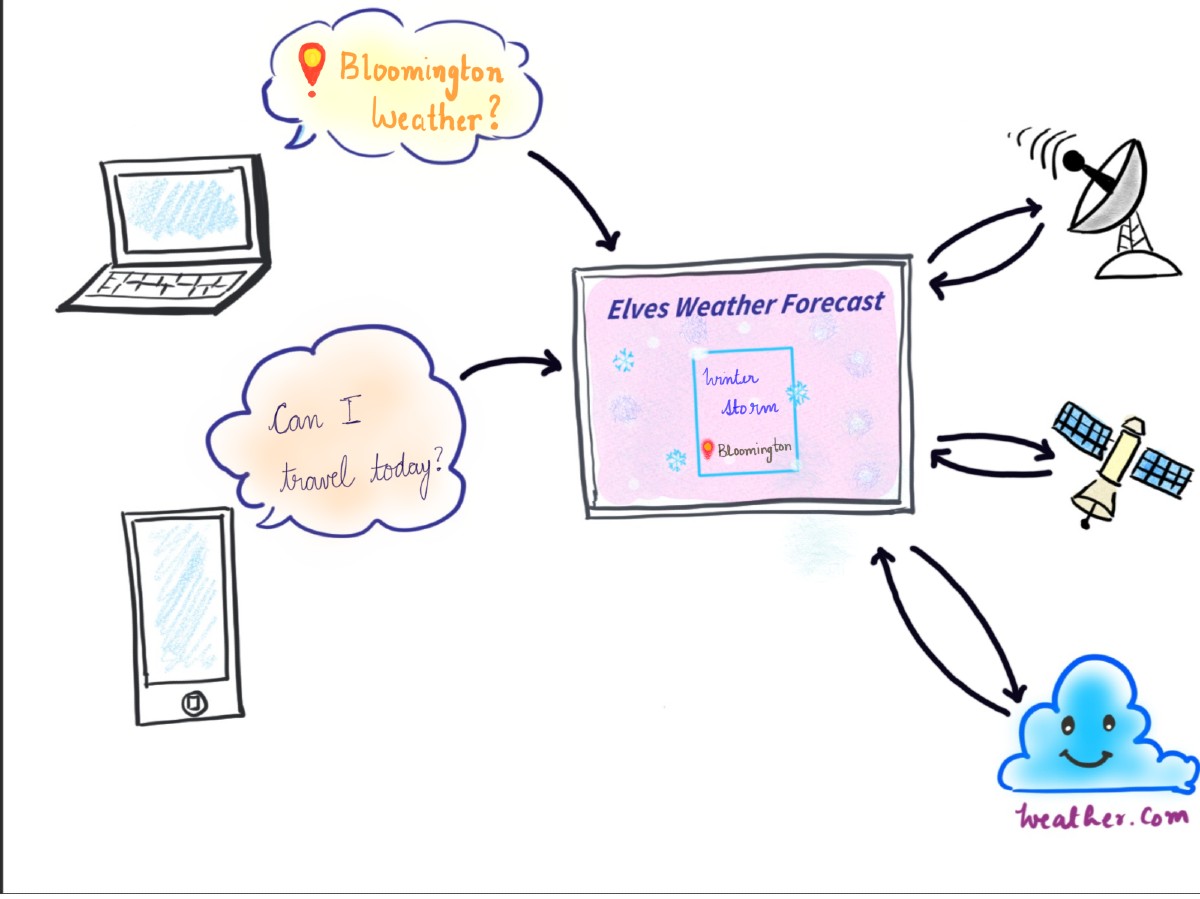 Bloomington
Weather?
Can I
travel today?
Elves Weather Forecast
Winter
Storm
Bloomington
Weather.com